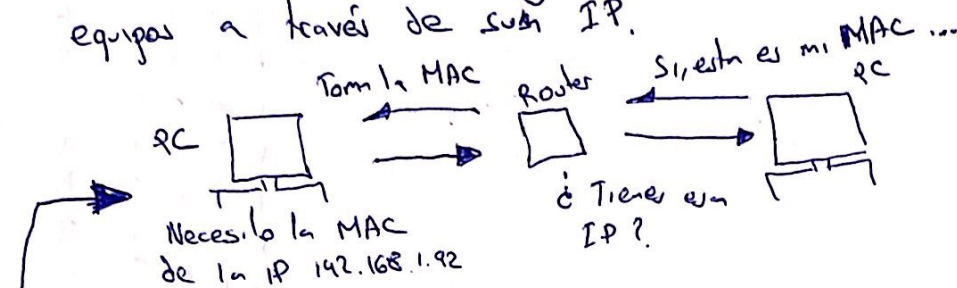 equipos a través de sus IP.
Toma la MAC
Router
Si, esta es mi MAC ...
PC
PC
¿ Tienes esa
IP ?
Necesito la MAC
de la IP 192.168.1.92